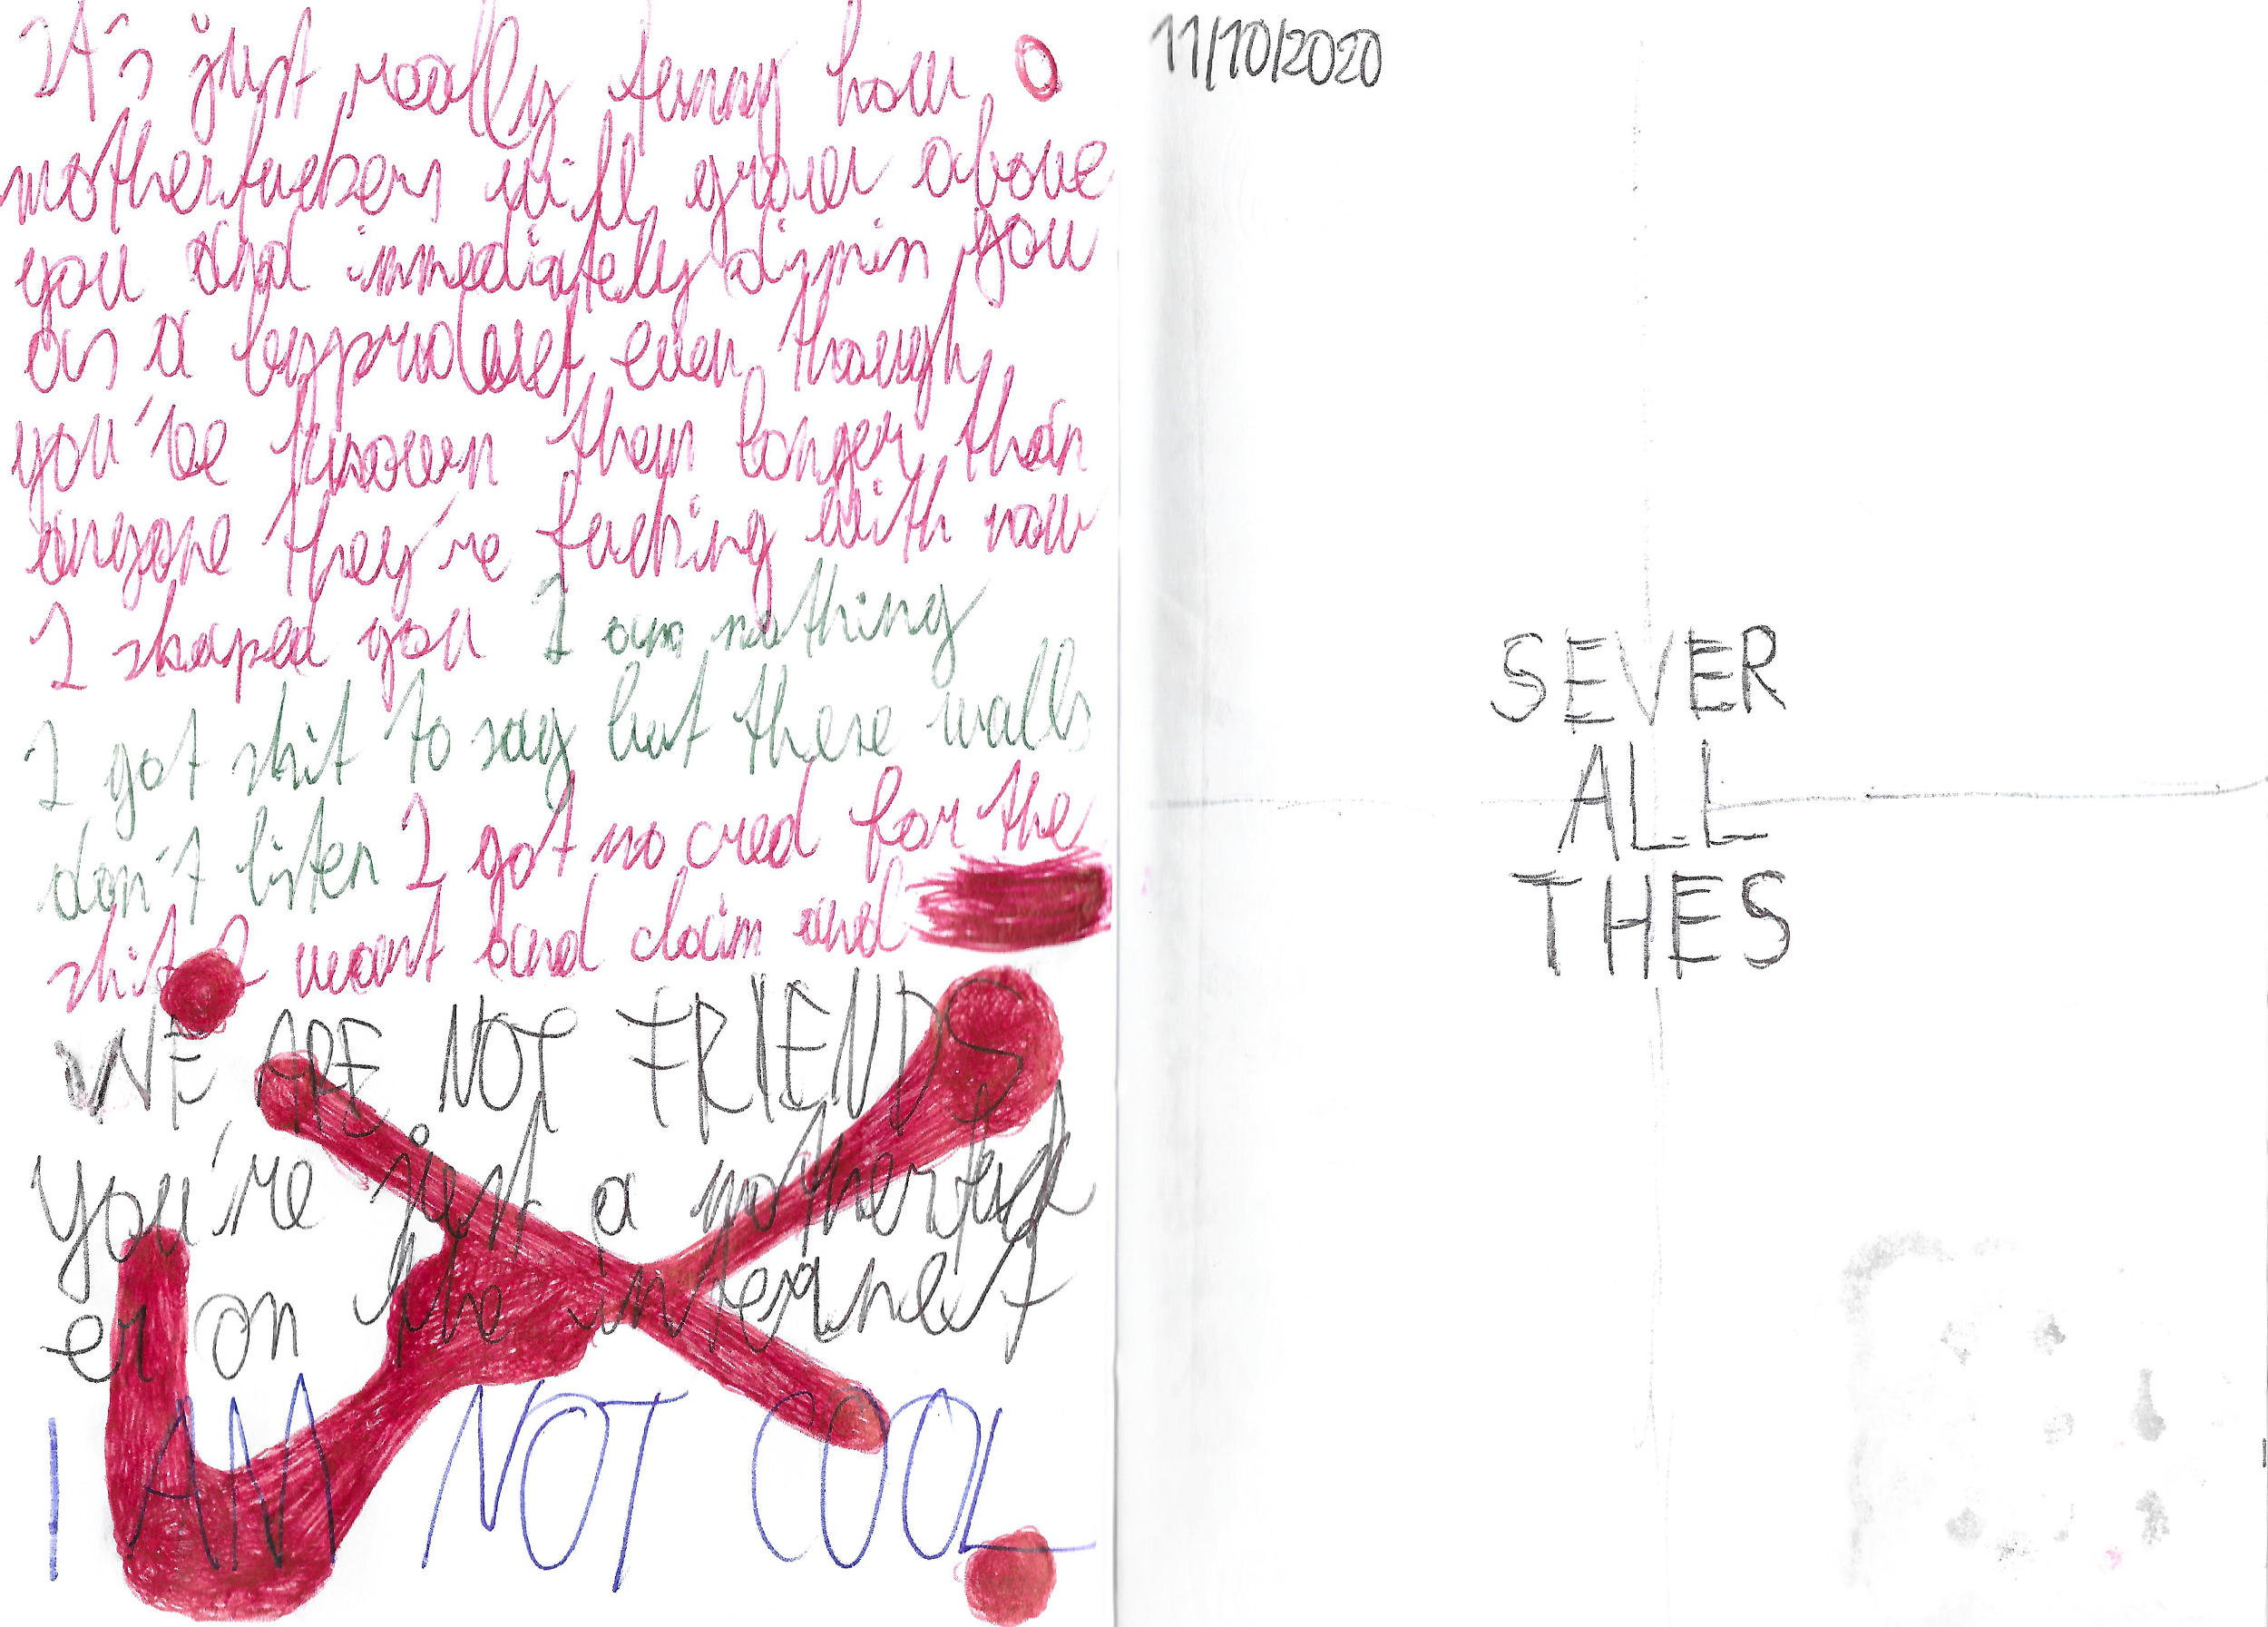 It's just really funny how
motherfuckers will grow above
you and immediately dismiss you
as a byproduct even though
you've known them longer than
anyone they're fucking with now
I shaped you I am nothing
I got shit to say but these walls
don't listen I got no cred for the
shit I want and claim and
WE ARE NOT FRIENDS
you're just a motherfuck
er on the internet
I AM NOT COOL
11/10/2020
SEVER
ALL
THES